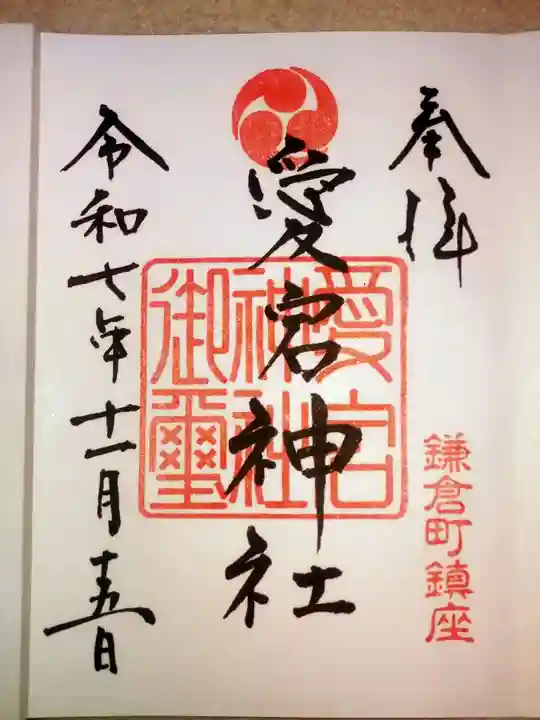 奉拝
鎌倉町鎮座
愛宕神社
愛宕神社御璽
令和七年十一月十五日